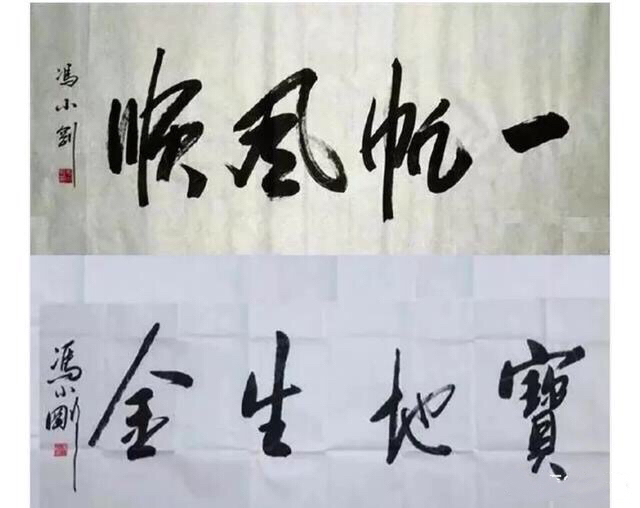 一帆風順
馮小剛
寶地生金
馮小剛